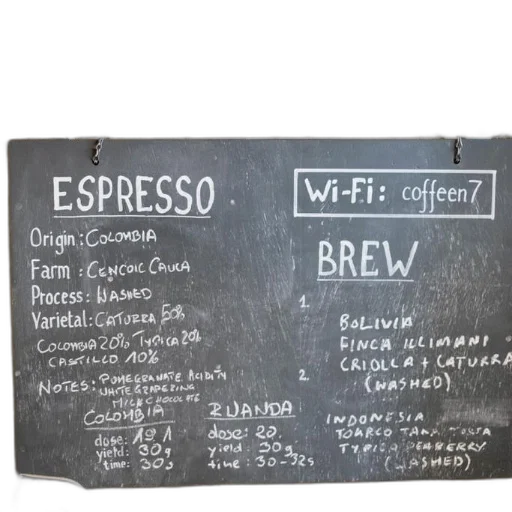 ESPRESSO
Origin : COLOMBIA
Farm : CENCOIC CAUCA
Process : WASHED
Varietal : CATURRA 50%
COLOMBIA 20% TYPICA 20%
CASTILLO 10%
NOTES : POMEGRANATE ACIDITY
WHITE GRAPE
MILK CHOCOLATE
COLOMBIA
dose: 19
yield: 30g
time: 30s
RUANDA
dose: 20
yield: 30g
time: 30-32s
Wi-Fi: coffeen7
BREW
1.
BOLIVIA
FINCA ILLIMANI
CRIOLLA + CATURRA
(WASHED)
2.
INDONESIA
TOARCO TANA
TYPICA PEABERRY
(WASHED)